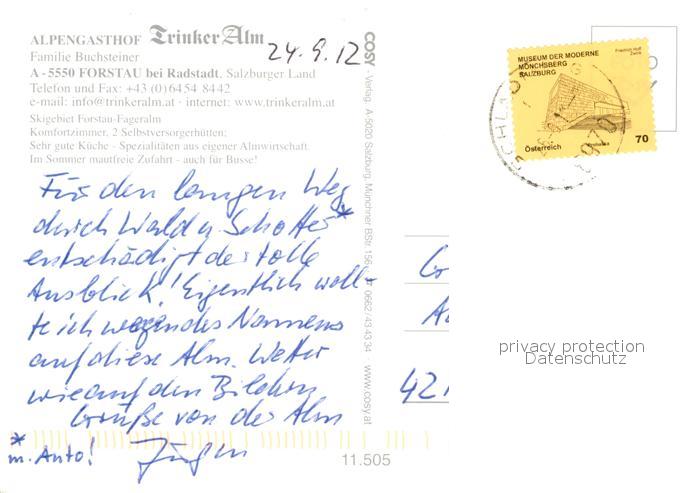 ALPENGASTHOF Trinker Alm
Familie Buchsteiner
A - 5550 FORSTAU bei Radstadt, Salzburger Land
Telefon und Fax: +43 (0)6454 8442
e-mail: info@trinkeralm.at · internet: www.trinkeralm.at
Skigebiet Forstau-Fageralm
Komfortzimmer, 2 Selbstversorgerhütten;
Sehr gute Küche - Spezialitäten aus eigener Almwirtschaft.
Im Sommer mautfreie Zufahrt - auch für Busse!
24.9.12
Für den langen Weg
durch Wald u. Schotter*
entschädigt der tolle
Ausblick! Eigentlich woll-
te ich wegen des Namens
auf diese Alm. Wetter
wie auf den Bildern
Grüße von der Alm
Jürgen
* m. Auto!
COSY - Verlag, A-5020 Salzburg, Münchner BStr. 156 0662/43 43 34 www.cosy.at
11.505
MUSEUM DER MODERNE
MÖNCHSBERG
SALZBURG
Friedrich Hoff
Zwink
Österreich
70
421
privacy protection
Datenschutz